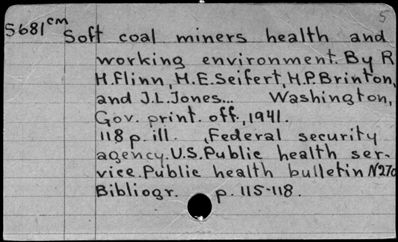 5
S681cm
Soft coal miners health and
working environment. By R
H.Flinn, H.E.Seifert, H.P.Brinton,
and J.L.Jones... Washington,
Gov. print. off., 1941.
118 p. ill. Federal security
agency. U.S. Public health ser-
vice. Public health bulletin N270
Bibliogr. p. 115-118.